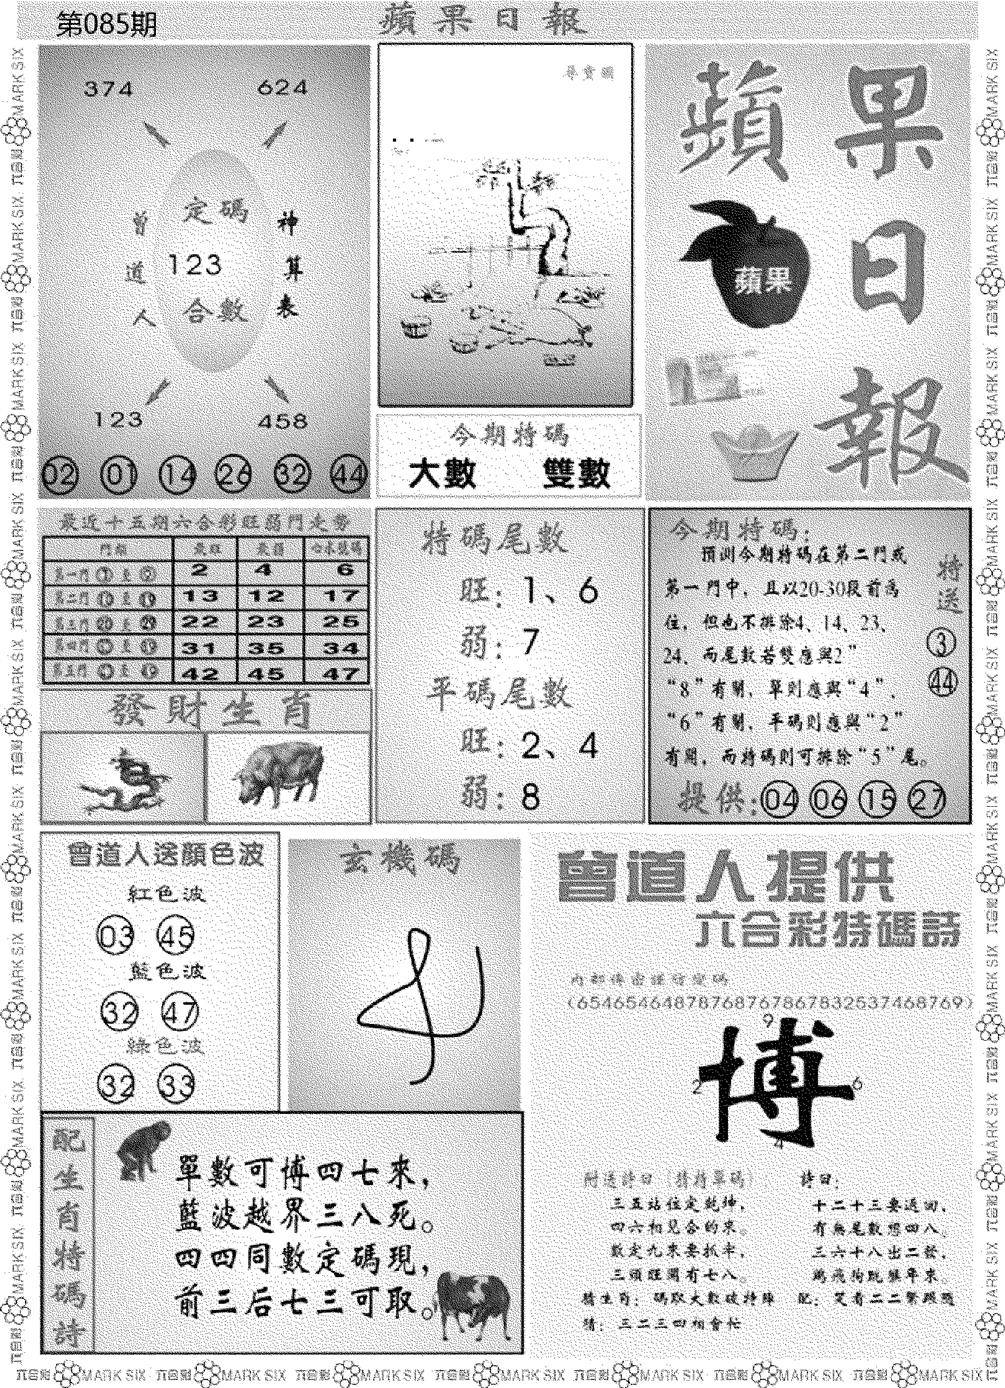 第085期
蘋果日報
374
624
定碼
123
合數
曾道人
神算表
123
458
02 01 14 26 32 44
尋寶圖
今期特碼
大數 雙數
蘋果日報
蘋果
最近十五期六合彩旺弱門走勢
門類 最旺 最弱 心水號碼
第一門 至 2 4 6
第二門 至 13 12 17
第三門 至 22 23 25
第四門 至 31 35 34
第五門 至 42 45 47
發財生肖
特碼尾數
旺: 1、6
弱: 7
平碼尾數
旺: 2、4
弱: 8
今期特碼:
預測今期特碼在第二門或
第一門中，且以20-30段前為
佳，但也不排除4、14、23、
24、而尾數若雙應與2”
“8”有關，單則應與“4”、
“6”有關，平碼則應與“2”
有關，而特碼則可排除“5”尾。
特送
3
44
提供: 04 06 15 27
曾道人送顏色波
紅色波
03 45
藍色波
32 47
綠色波
32 33
玄機碼
曾道人提供
六合彩特碼詩
內部傳密謹防
(65465464878768767867832537468769)
9
2 博 6
4
附送詩曰（特單碼）
三五站位定乾坤，
四六相見合的來。
數定九來要抓牢，
三頭旺開有七八。
猜生肖：碼取大數破特陣
猜：三二三四相會忙
詩曰:
十二十三要返回，
有無尾數想四八。
三六十八出二發，
飛狗跳猴年來。
配：笑看二二緊跟隨
配生肖特碼詩
單數可博四七來，
藍波越界三八死。
四四同數定碼現，
前三后七三可取。
六合彩 MARK SIX 六合彩 MARK SIX 六合彩 MARK SIX 六合彩 MARK SIX 六合彩 MARK SIX 六合彩 MARK SIX 六合彩 MARK SIX